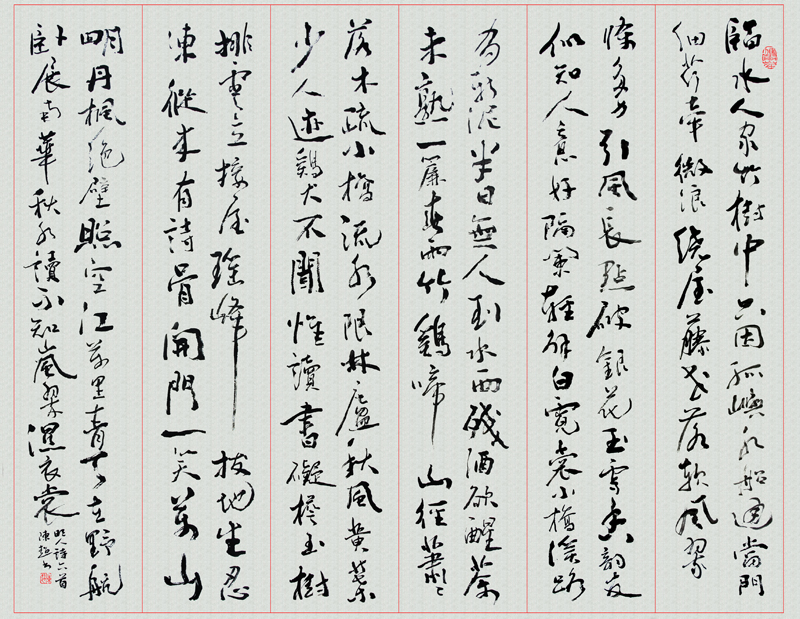 臨水人家竹樹中只因孤嶼水船通當門
細荇牽微浪繞屋藤花落軟風翠
條多力引風長點破銀花玉雪香韵友
似知人意好隔闌輕解白霓裳小橋溪路
有新泥半日無人到水西殘酒欲醒茶
未熟一簾春雨竹雞啼山徑蕭蕭
落木疏小橋流水限林廬秋風黃葉
少人迹雞犬不聞惟讀書礙檐玉樹
排雲立接屋瑤峰拔地生忍
凍從來有詩骨開門一笑萬山
明丹楓絕壁照空江萬里青天在野航
臥展南華秋水讀不知嵐翠濕衣裳
明人詩六首